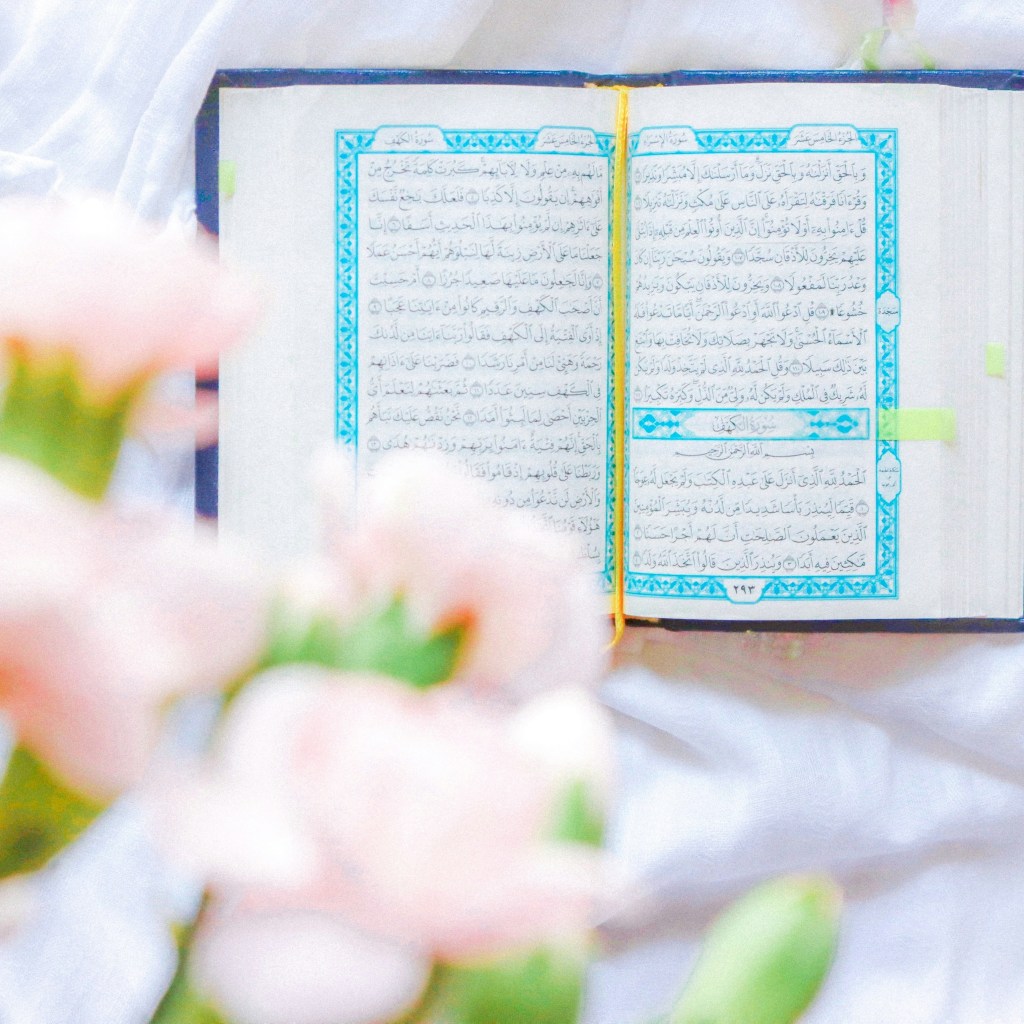 الجزء الخامس عشر
سورة الإسراء
وَبِٱلْحَقِّ أَنزَلْنَٰهُ وَبِٱلْحَقِّ نَزَلَ وَمَآ أَرْسَلْنَٰكَ إِلَّا مُبَشِّرًا وَنَذِيرًا ١٠٥
وَقُرْءَانًا فَرَقْنَٰهُ لِتَقْرَأَهُۥ عَلَى ٱلنَّاسِ عَلَىٰ مُكْثٍ وَنَزَّلْنَٰهُ تَنزِيلًا ١٠٦
قُلْ ءَامِنُوا۟ بِهِۦٓ أَوْ لَا تُؤْمِنُوٓا۟ إِنَّ ٱلَّذِينَ أُوتُوا۟ ٱلْعِلْمَ مِن قَبْلِهِۦٓ إِذَا يُتْلَىٰ
عَلَيْهِمْ يَخِرُّونَ لِلْأَذْقَانِ سُجَّدًا ١٠٧ وَيَقُولُونَ سُبْحَٰنَ رَبِّنَآ إِن كَانَ
وَعْدُ رَبِّنَا لَمَفْعُولًا ١٠٨ وَيَخِرُّونَ لِلْأَذْقَانِ يَبْكُونَ وَيَزِيدُهُمْ
خُشُوعًا ۩ ١٠٩ قُلِ ٱدْعُوا۟ ٱللَّهَ أَوِ ٱدْعُوا۟ ٱلرَّحْمَٰنَ أَيًّا مَّا تَدْعُوا۟ فَلَهُ
ٱلْأَسْمَآءُ ٱلْحُسْنَىٰ وَلَا تَجْهَرْ بِصَلَاتِكَ وَلَا تُخَافِتْ بِهَا وَٱبْتَغِ
بَيْنَ ذَٰلِكَ سَبِيلًا ١١٠ وَقُلِ ٱلْحَمْدُ لِلَّهِ ٱلَّذِى لَمْ يَتَّخِذْ وَلَدًا وَلَمْ يَكُن
لَّهُۥ شَرِيكٌ فِى ٱلْمُلْكِ وَلَمْ يَكُن لَّهُۥ وَلِىٌّ مِّنَ ٱلذُّلِّ وَكَبِّرْهُ تَكْبِيرًۢا ١١١
سُورَةُ الكَهْفِ
بِسْمِ ٱللَّهِ ٱلرَّحْمَٰنِ ٱلرَّحِيمِ
ٱلْحَمْدُ لِلَّهِ ٱلَّذِىٓ أَنزَلَ عَلَىٰ عَبْدِهِ ٱلْكِتَٰبَ وَلَمْ يَجْعَل لَّهُۥ عِوَجَا
١ قَيِّمًا لِّيُنذِرَ بَأْسًا شَدِيدًا مِّن لَّدُنْهُ وَيُبَشِّرَ ٱلْمُؤْمِنِينَ
ٱلَّذِينَ يَعْمَلُونَ ٱلصَّٰلِحَٰتِ أَنَّ لَهُمْ أَجْرًا حَسَنًا ٢
مَّٰكِثِينَ فِيهِ أَبَدًا ٣ وَيُنذِرَ ٱلَّذِينَ قَالُوا۟ ٱتَّخَذَ ٱللَّهُ وَلَدًا ٤
سجدة
٢٩٣
الجزء الخامس عشر
سورة الكهف
مَّا لَهُم بِهِۦ مِنْ عِلْمٍ وَلَا لِءَابَآئِهِمْ كَبُرَتْ كَلِمَةً تَخْرُجُ مِنْ
أَفْوَٰهِهِمْ إِن يَقُولُونَ إِلَّا كَذِبًا ٥ فَلَعَلَّكَ بَٰخِعٌ نَّفْسَكَ
عَلَىٰٓ ءَاثَٰرِهِمْ إِن لَّمْ يُؤْمِنُوا۟ بِهَٰذَا ٱلْحَدِيثِ أَسَفًا ٦ إِنَّا
جَعَلْنَا مَا عَلَى ٱلْأَرْضِ زِينَةً لَّهَا لِنَبْلُوَهُمْ أَيُّهُمْ أَحْسَنُ عَمَلًا
٧ وَإِنَّا لَجَٰعِلُونَ مَا عَلَيْهَا صَعِيدًا جُرُزًا ٨ أَمْ حَسِبْتَ
أَنَّ أَصْحَٰبَ ٱلْكَهْفِ وَٱلرَّقِيمِ كَانُوا۟ مِنْ ءَايَٰتِنَا عَجَبًا ٩
إِذْ أَوَى ٱلْفِتْيَةُ إِلَى ٱلْكَهْفِ فَقَالُوا۟ رَبَّنَآ ءَاتِنَا مِن لَّدُنكَ
رَحْمَةً وَهَيِّئْ لَنَا مِنْ أَمْرِنَا رَشَدًا ١٠ فَضَرَبْنَا عَلَىٰٓ ءَاذَانِهِمْ
فِى ٱلْكَهْفِ سِنِينَ عَدَدًا ١١ ثُمَّ بَعَثْنَٰهُمْ لِنَعْلَمَ أَىُّ
ٱلْحِزْبَيْنِ أَحْصَىٰ لِمَا لَبِثُوٓا۟ أَمَدًا ١٢ نَّحْنُ نَقُصُّ عَلَيْكَ نَبَأَهُم
بِٱلْحَقِّ إِنَّهُمْ فِتْيَةٌ ءَامَنُوا۟ بِرَبِّهِمْ وَزِدْنَٰهُمْ هُدًى ١٣
وَرَبَطْنَا عَلَىٰ قُلُوبِهِمْ إِذْ قَامُوا۟ فَقَالُوا۟
وَٱلْأَرْضِ لَن نَّدْعُوَا۟ مِن دُونِهِۦٓ
هَٰٓؤُلَآءِ قَوْمُنَا